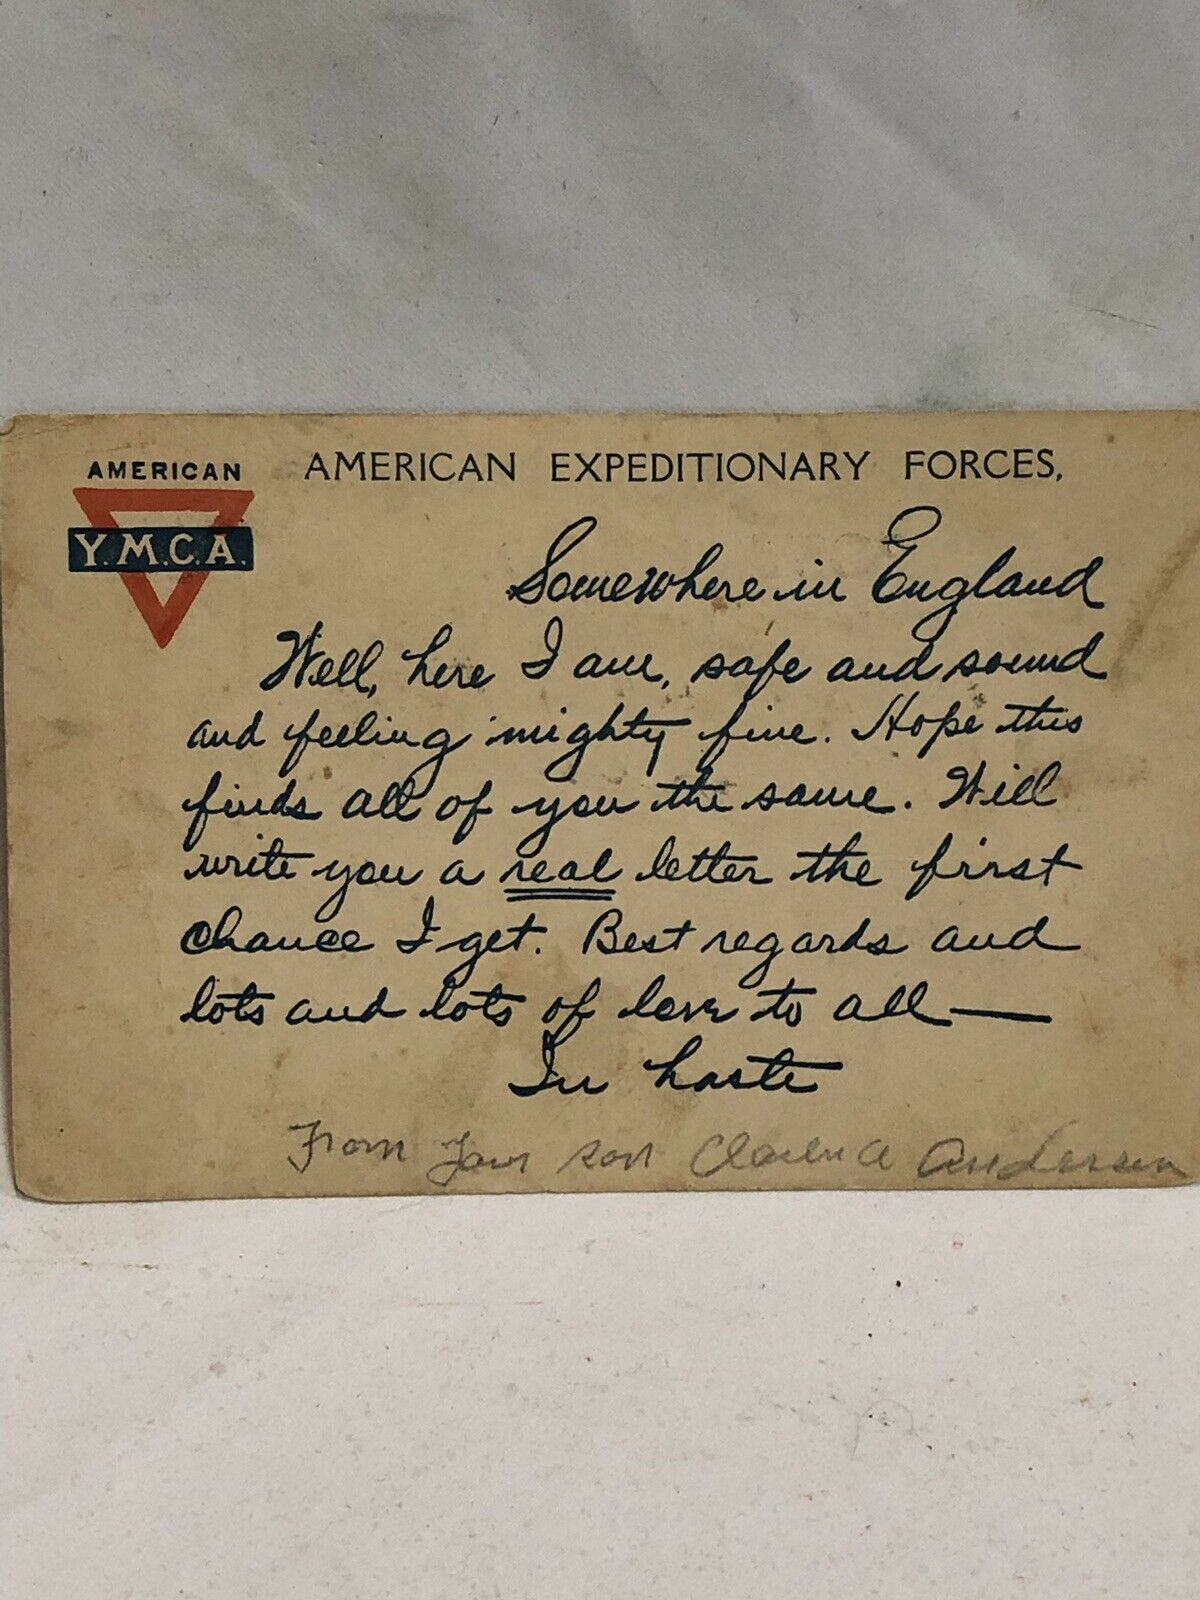 AMERICAN
Y.M.C.A.
AMERICAN EXPEDITIONARY FORCES,
Somewhere in England
Well, here I am, safe and sound
and feeling mighty fine. Hope this
finds all of you the same. Will
write you a real letter the first
chance I get. Best regards and
lots and lots of love to all —
In haste
From your son Clarence Andersen